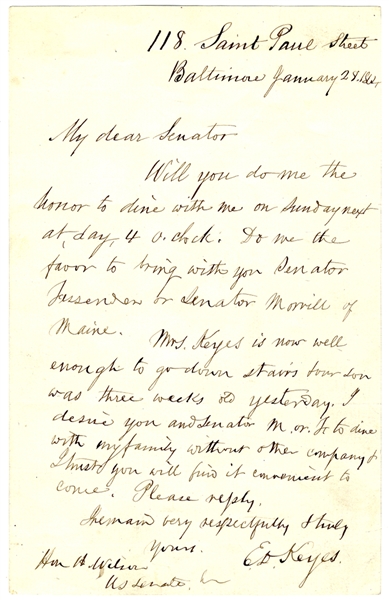 118. Saint Paul Street
Baltimore January 28. 1864
My dear Senator
Will you do me the
honor to dine with me on Sunday next
at, say, 4 o.clock. Do me the
favor to bring with you Senator
Fessenden or Senator Morrill of
Maine. Mrs. Keyes is now well
enough to go down stairs & our son
was three weeks old yesterday. I
desire you and Senator M. or F. to dine
with my family without other company &
I trust you will find it convenient to
come. Please reply.
I remain very respectfully & truly
yours.
E. D. Keyes.
Hon H. Wilson
US Senate